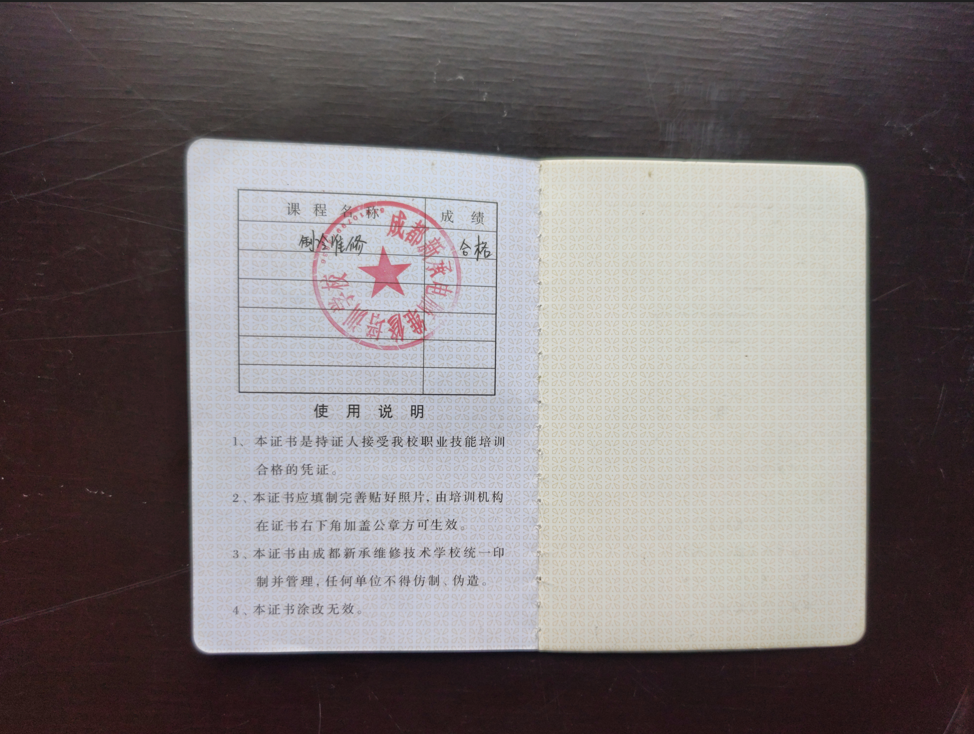 课程名称 成绩
制冷维修 合格
成都新承电脑维修培训学校
使用说明
1、本证书是持证人接受我校职业技能培训
合格的凭证。
2、本证书应填制完善贴好照片,由培训机构
在证书右下角加盖公章方可生效。
3、本证书由成都新承维修技术学校统一印
制并管理,任何单位不得仿制、伪造。
4、本证书涂改无效。